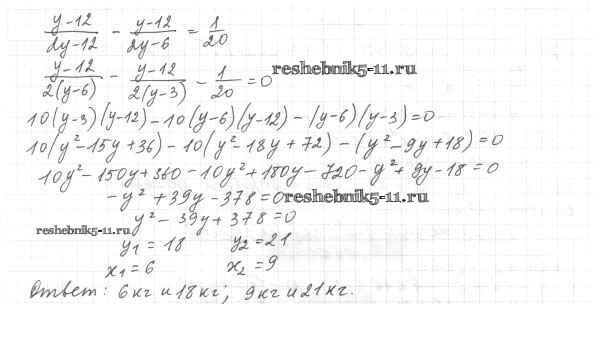 (y-12)/(2y-12) - (y-12)/(2y-6) = 1/20
(y-12)/(2(y-6)) - (y-12)/(2(y-3)) - 1/20 = 0
reshebnik5-11.ru
10(y-3)(y-12)-10(y-6)(y-12)-(y-6)(y-3)=0
10(y²-15y+36)-10(y²-18y+72)-(y²-9y+18)=0
10y²-150y+360-10y²+180y-720-y²+9y-18=0
-y²+39y-378=0
reshebnik5-11.ru
y²-39y+378=0
reshebnik5-11.ru
y₁=18 y₂=21
x₁=6 x₂=9
Ответ: 6кг и 18кг; 9кг и 21кг.